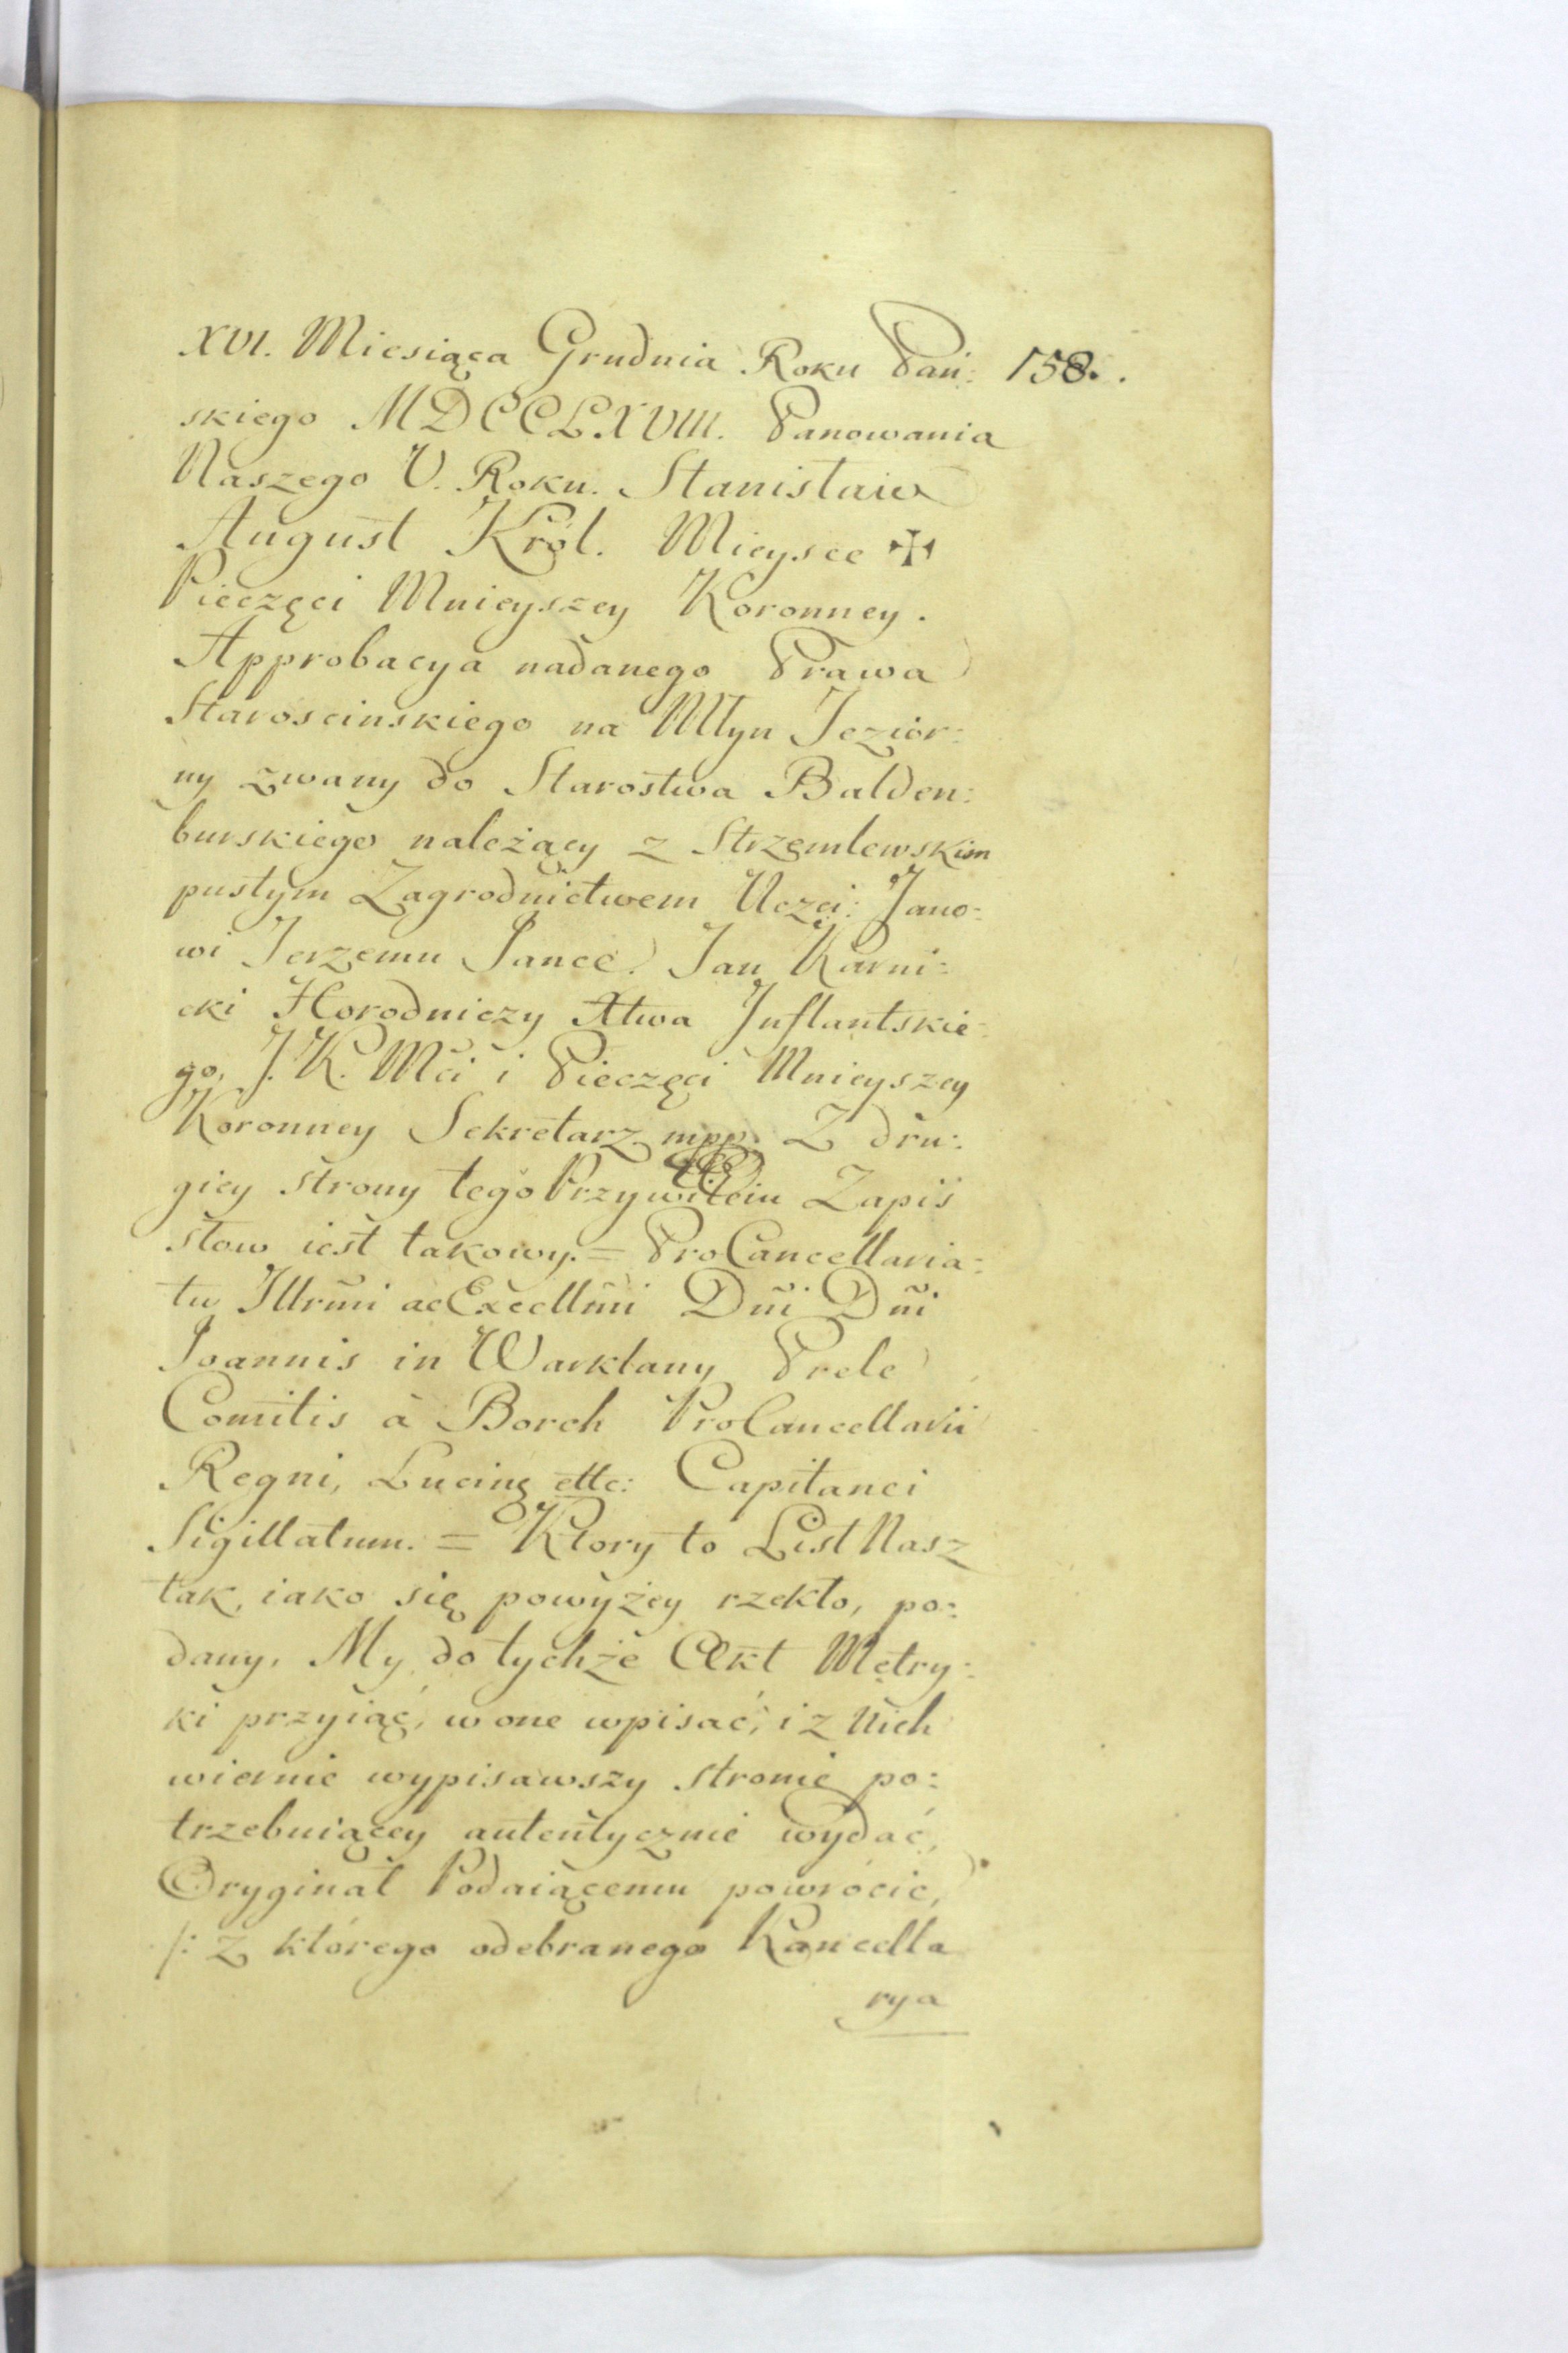 XVI. Miesiąca Grudnia Roku Pań: 158.
skiego MDCCLXVIII. Panowania
Naszego V. Roku. Stanisław
August Król. Mieysce ✠
Pieczęci Mnieyszey Koronney.
Approbacya nadanego Prawa
Starościnskiego na Młyn Jezior:
ny zwany do Starostwa Balden:
burskiego należący z Strzęmlewskim
pustym Zagrodnictwem Uczci: Jano:
wi Jerzemu Jance. Jan Karni:
cki Horodniczy Xtwa Inflantskie:
go, J. K. Mci i Pieczęci Mnieyszey
Koronney Sekretarz mpp. Z dru:
giey strony tego Przywileiu Zapis
słow iest takowy. = ProCancellaria:
tu Illrmi ac Excellmi Dni Dni
Joannis in Warklany Prele
Comitis à Borch ProCancellarii
Regni, Lucinę ettc: Capitanei
Sigillatum. = Ktory to List Nasz
tak, iako się powyżey rzekło, po:
dany, My do tychże Akt Metry:
ki przyiąć, w one wpisać, i z nich
wiernie wypisawszy stronie po:
trzebuiącey autentycznie wydać,
Oryginał Podaiącemu powrócić,
/: z którego odebranego Kancella
rya